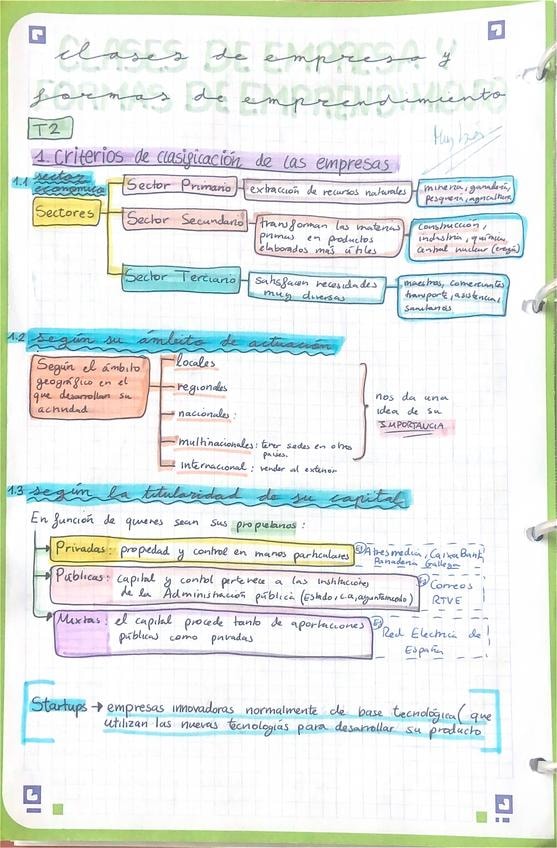 clases de empresa y
CLASES DE EMPRESA Y
formas de emprendimiento
FORMAS DE EMPRENDIMIENTO
T2
Muy bien
1. Criterios de clasificación de las empresas
1.1 sector económico
Sectores
Sector Primario
extracción de recursos naturales
minería, ganadería,
pesquería, agricultura
Sector Secundario
transforman las materias
primas en productos
elaborados más útiles
Construcción,
industria, química,
central nuclear (energía)
Sector Terciario
Satisfacen necesidades
muy diversas
maestros, comerciantes
transporte, asistencia,
sanitarios
1.2 según su ámbito de actuación
Según el ámbito
geográfico en el
que desarrollan su
actividad
locales
regionales
nacionales:
multinacionales: tener sedes en otros
países.
internacional: vender al exterior
nos da una
idea de su
IMPORTANCIA
1.3 según la titularidad de su capital
En función de quienes sean sus propietarios:
Privadas: propiedad y control en manos particulares
Ej Atresmedia, CaixaBank,
Panadería Gallega
Públicas: capital y control pertenece a las instituciones
de la Administración pública (Estado, c.a, ayuntamiento)
Ej Correos
RTVE
Mixtas: el capital procede tanto de aportaciones
públicas como privadas
Ej Red Electrica de
España
Startups → empresas innovadoras normalmente de base tecnológica (que
utilizan las nuevas tecnologías para desarrollar su producto